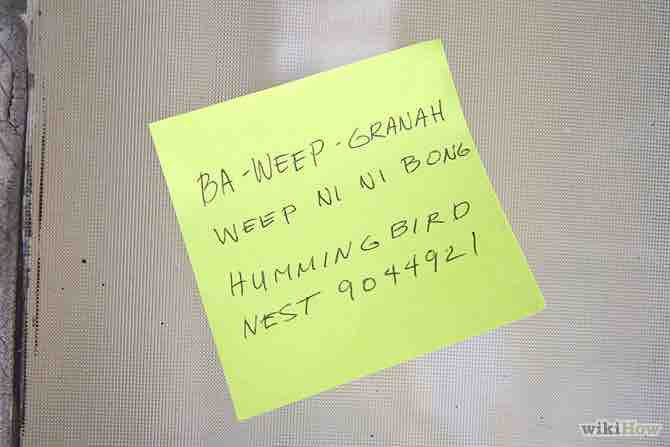 BA-WEEP-GRANAH
WEEP NI NI BONG
HUMMINGBIRD
NEST 9044921
wikiHow